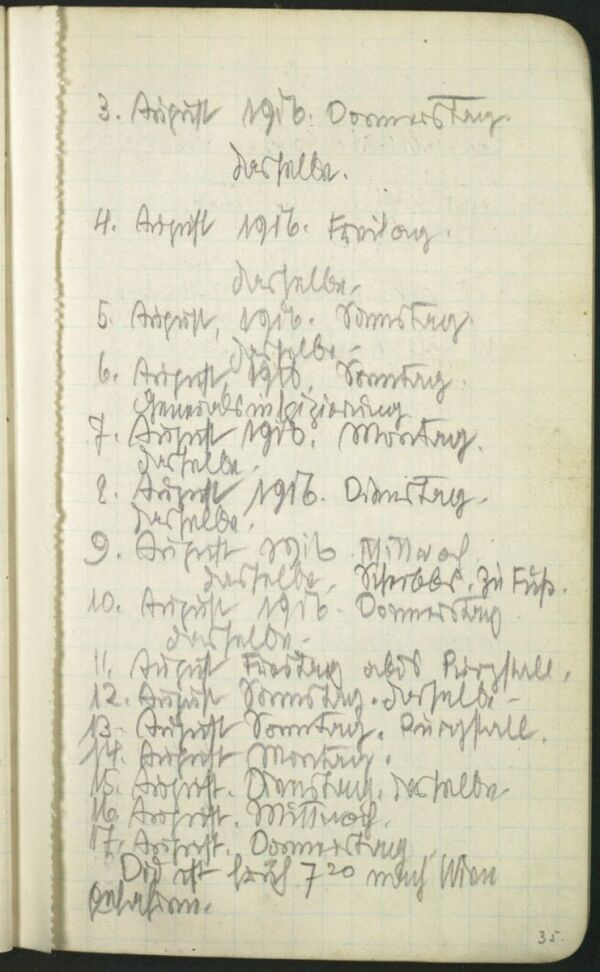 3. August 1916. Donnerstag.
dasselbe.
4. August 1916. Freitag.
dasselbe.
5. August, 1916. Samstag.
dasselbe.
6. August, 1916. Sonntag.
Generalsinspizierung
7. August 1916. Montag.
dasselbe.
8. August 1916. Dienstag.
dasselbe.
9. August 1916. Mittwoch
dasselbe. Scheibbs. zu Fuß.
10. August 1916. Donnerstag
dasselbe.
11. August Freitag Purgstall.
12. August Samstag. dasselbe.
13. August Sonntag. Purgstall.
14. August Montag.
15. August. Dienstag. dasselbe
16. August. Mittwoch.
17. August. Donnerstag
ist früh 7 20 nach Wien
gefahren.
35.